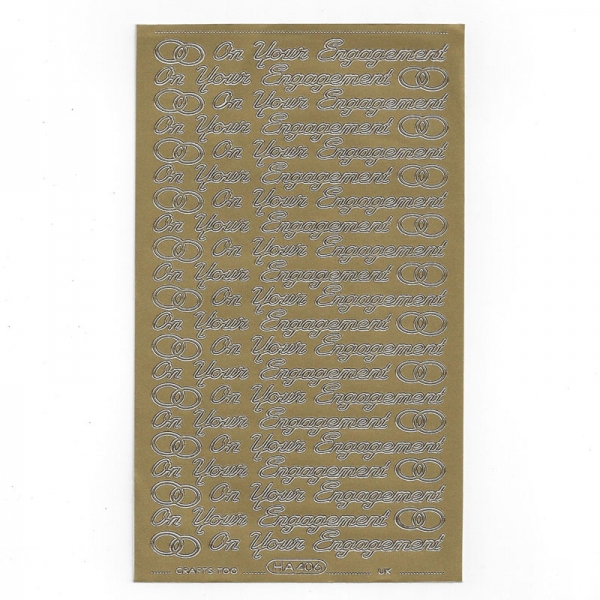 On Your Engagement
On Your Engagement
On Your Engagement
On Your Engagement
On Your Engagement
On Your Engagement
On Your Engagement
On Your Engagement
On Your Engagement
On Your Engagement
On Your Engagement
On Your Engagement
On Your Engagement
On Your Engagement
On Your Engagement
On Your Engagement
On Your Engagement
On Your Engagement
On Your Engagement
On Your Engagement
On Your Engagement
CRAFTS TOO HA 406 UK